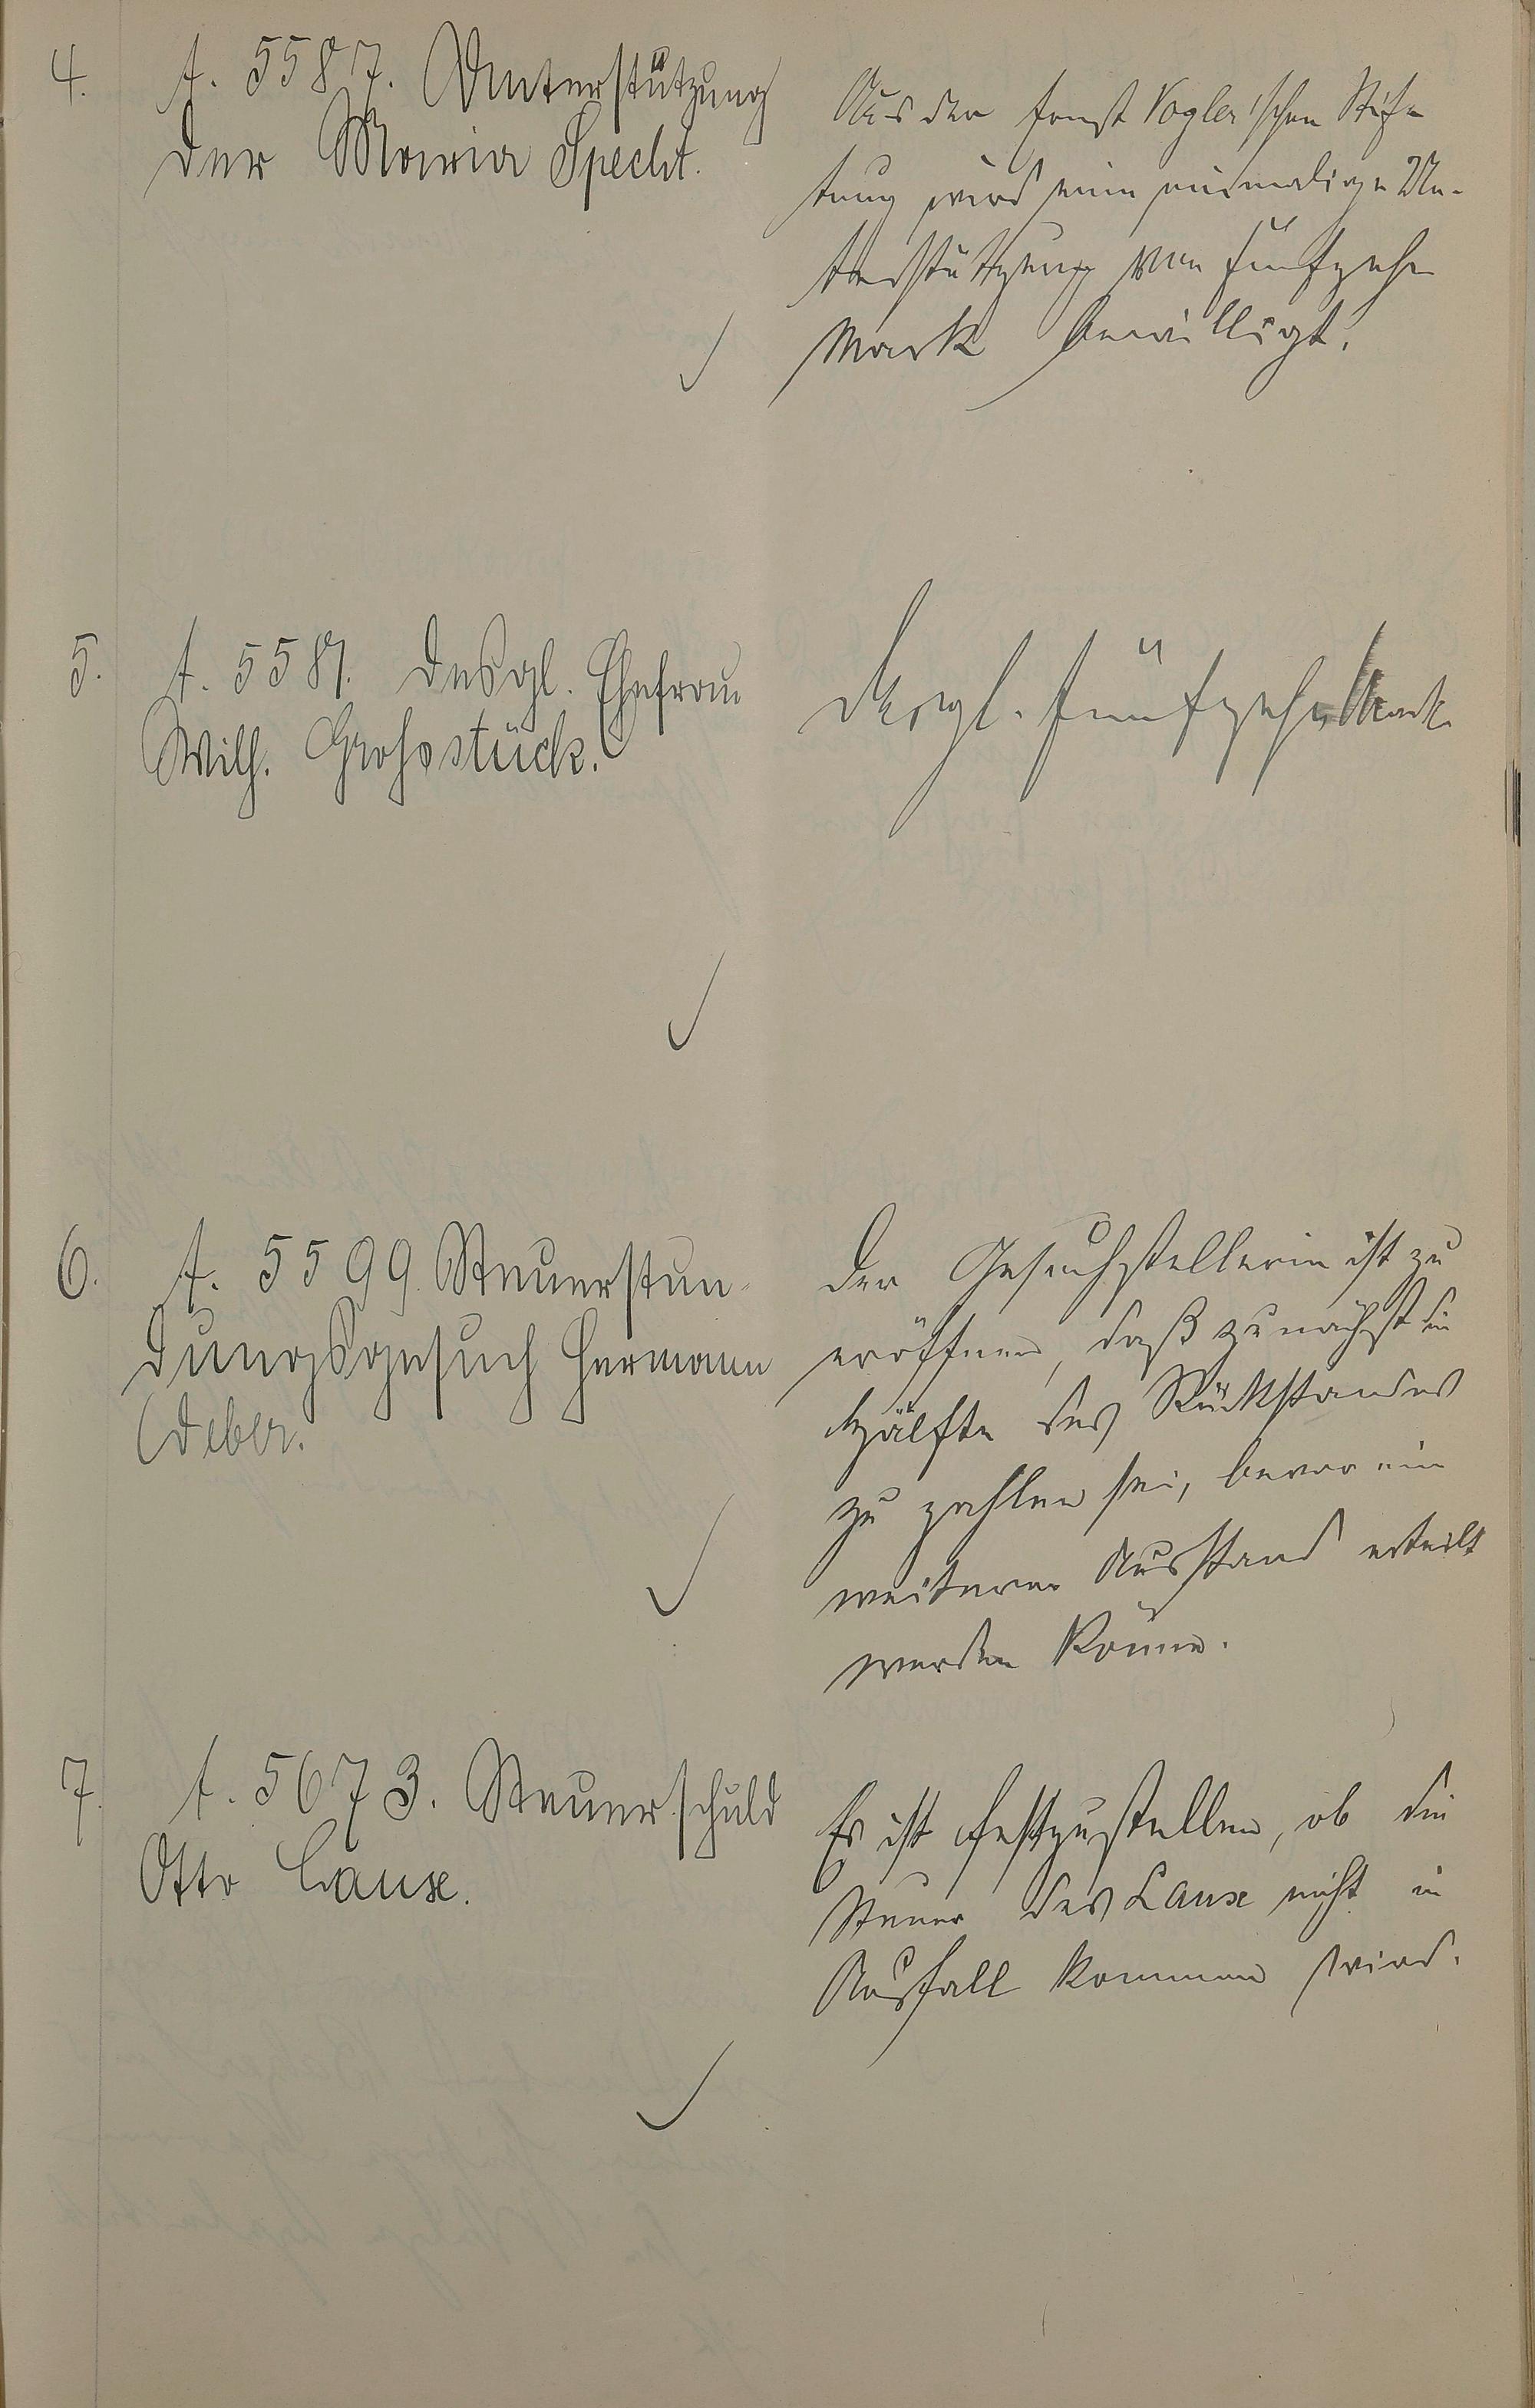 4.
t. 5587. Unterstützung
der Maria Specht.
Aus der Ernst Vogler'schen Stif-
tung wird eine einmalige Un-
terstützung von fünfzehn
Mark bewilligt.
5.
t. 5581. desgl. Ehefrau
Wilh. Großstück.
desgl. fünfzehn Mark
6.
t. 5599. Steuerstun-
dungsgesuch Hermann
Weber.
Der Gesuchstellerin ist zu
eröffnen, daß zunächst die
Hälfte des Rückstandes
zu zahlen sei, bevor ein
weiterer Ausstand erteilt
werden könne.
7.
t. 5673. Steuerschuld
Otto Lause.
Es ist festzustellen, ob die
Steuer des Lause nicht in
Ausfall kommen wird.